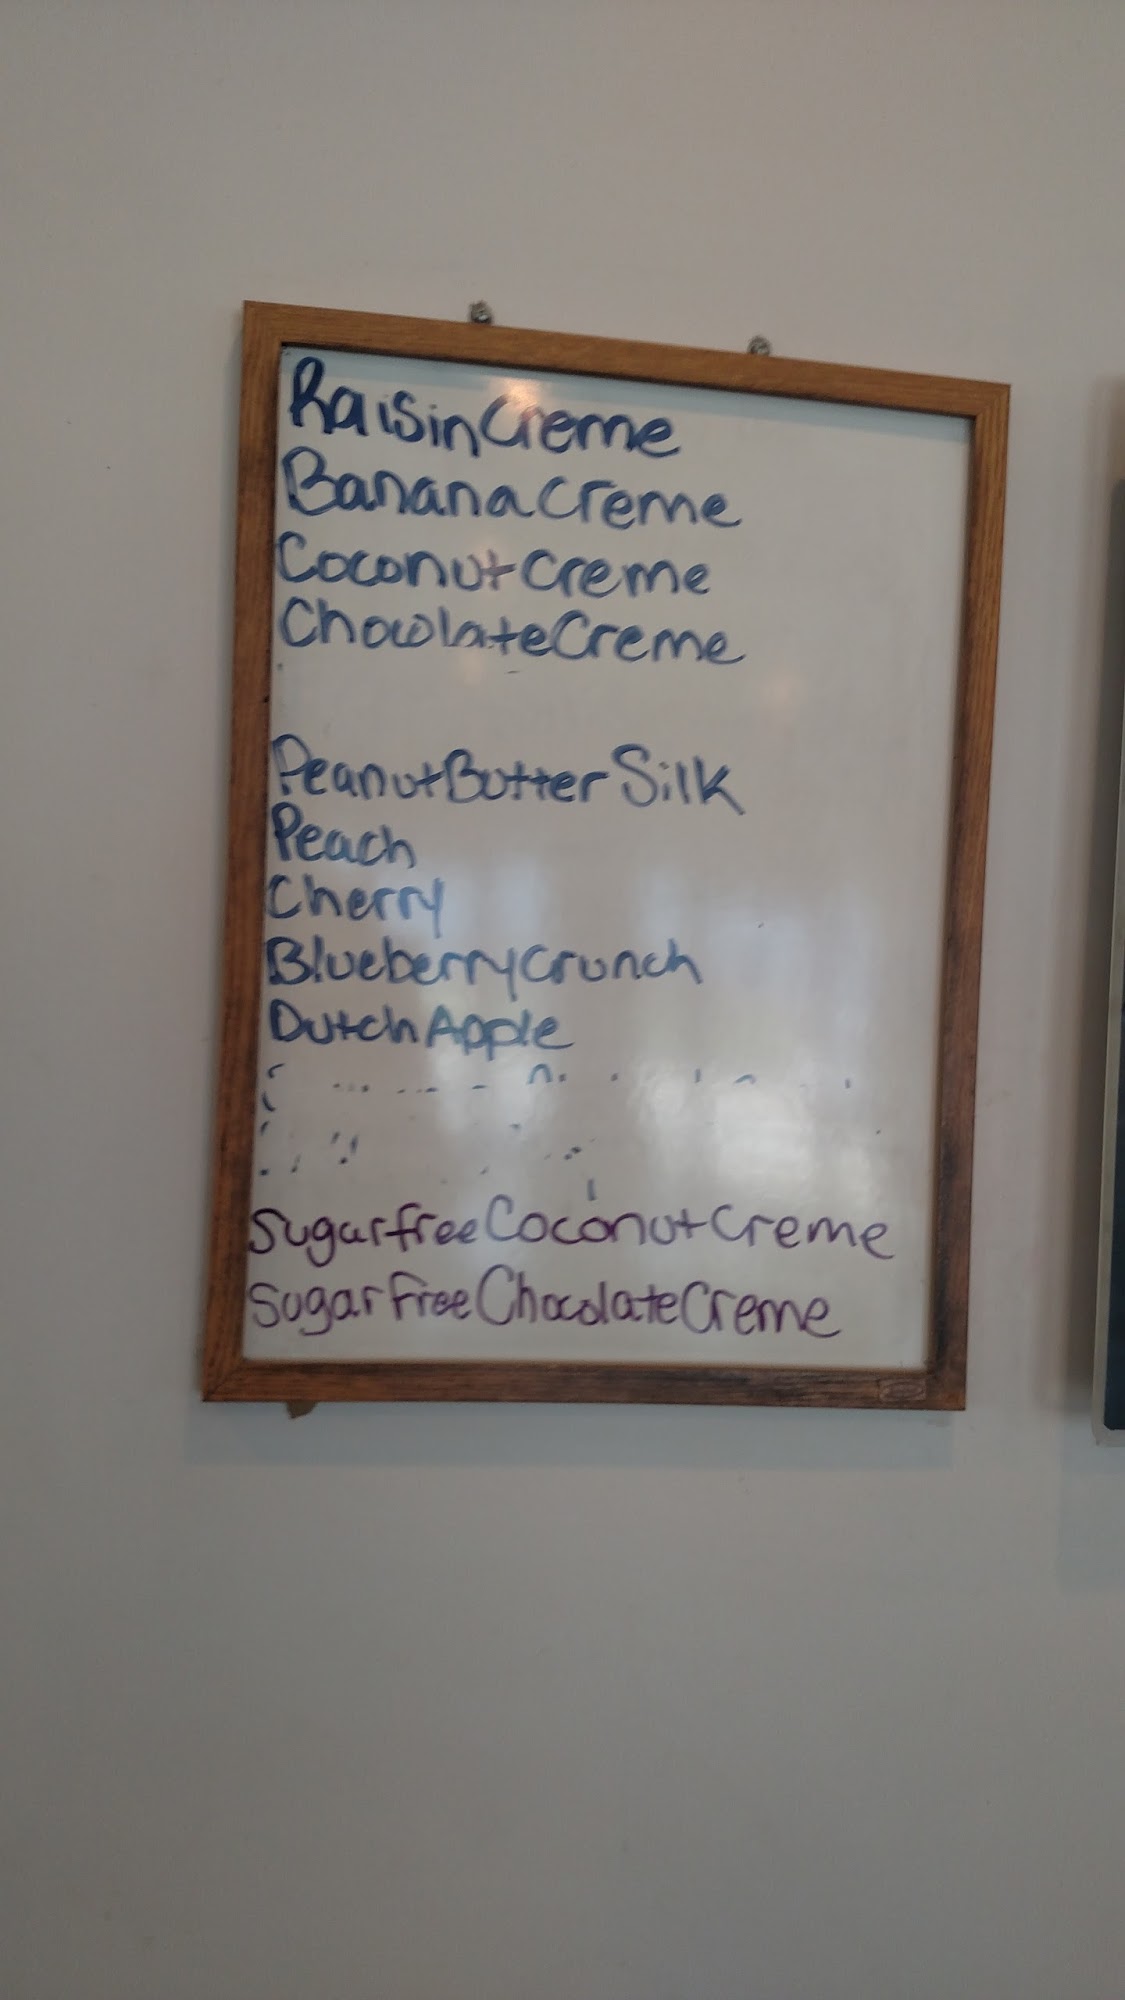 Raisin Creme
Banana Creme
Coconut Creme
Chocolate Creme
Peanut Butter Silk
Peach
Cherry
Blueberry Crunch
Dutch Apple
Sugar free Coconut Creme
Sugar Free Chocolate Creme